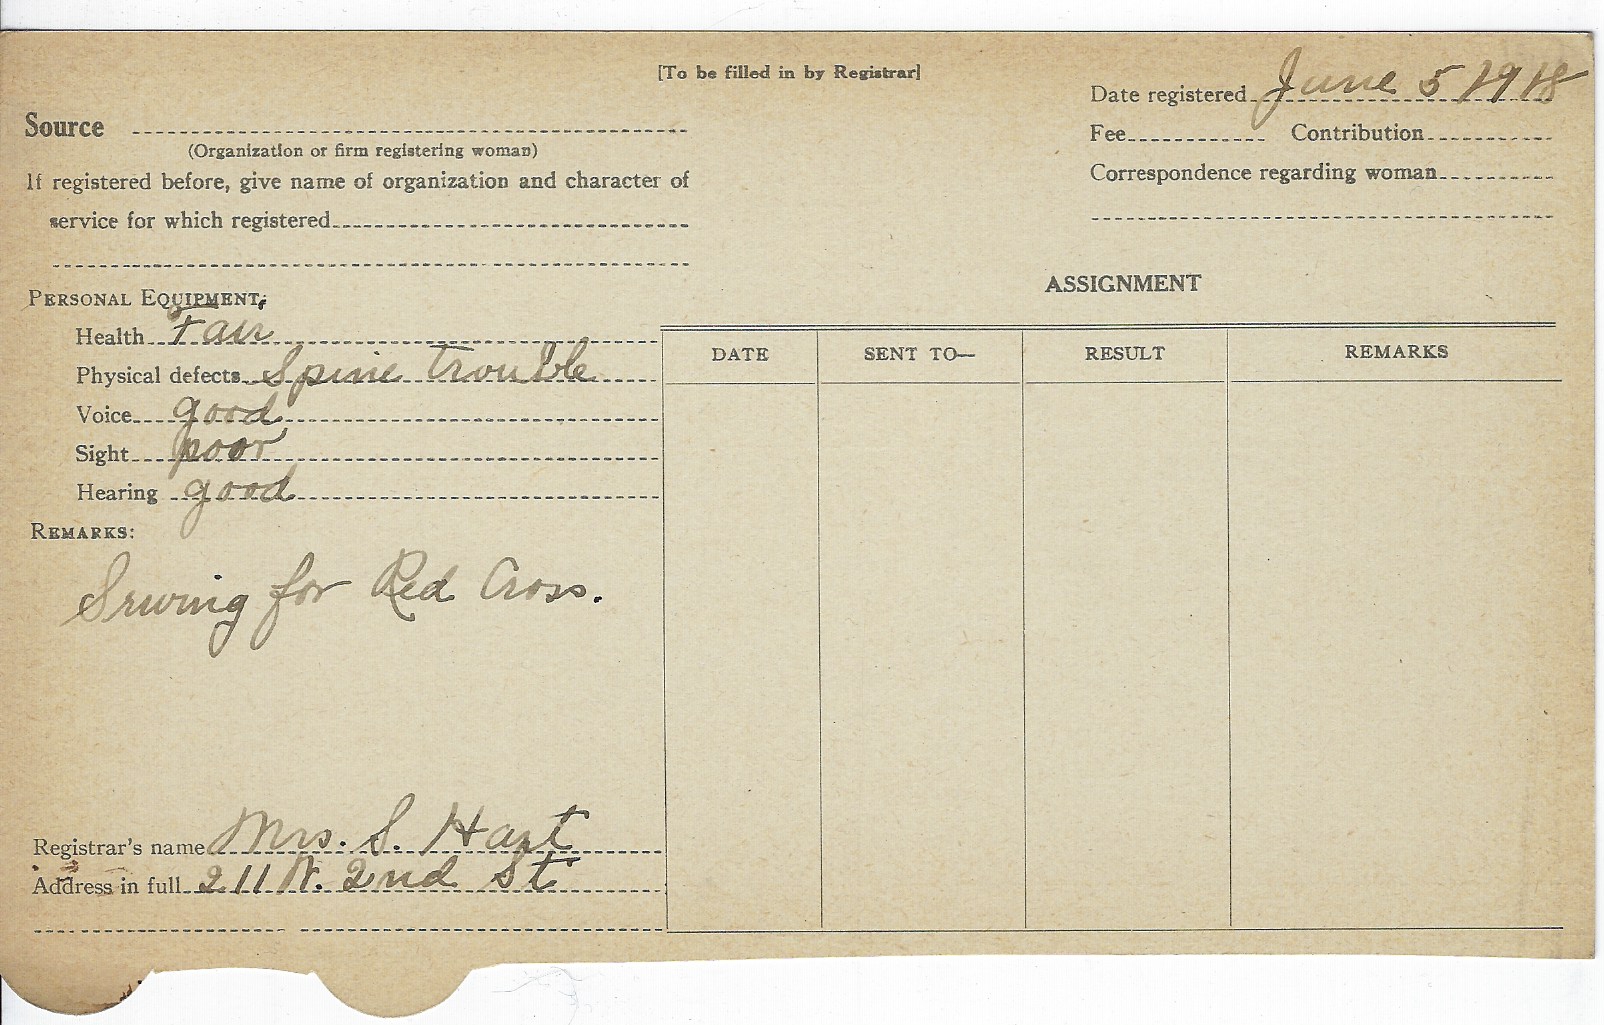 [To be filled in by Registrar]
Date registered June 5 1918
Source
(Organization or firm registering woman)
Fee Contribution
If registered before, give name of organization and character of
service for which registered
Correspondence regarding woman
PERSONAL EQUIPMENT:
Health Fair
Physical defects Spine trouble
Voice good
Sight poor
Hearing good
REMARKS:
Sewing for Red Cross.
Registrar's name Mrs. S. Hart
Address in full 211 N. 2nd St
ASSIGNMENT
DATE SENT TO— RESULT REMARKS